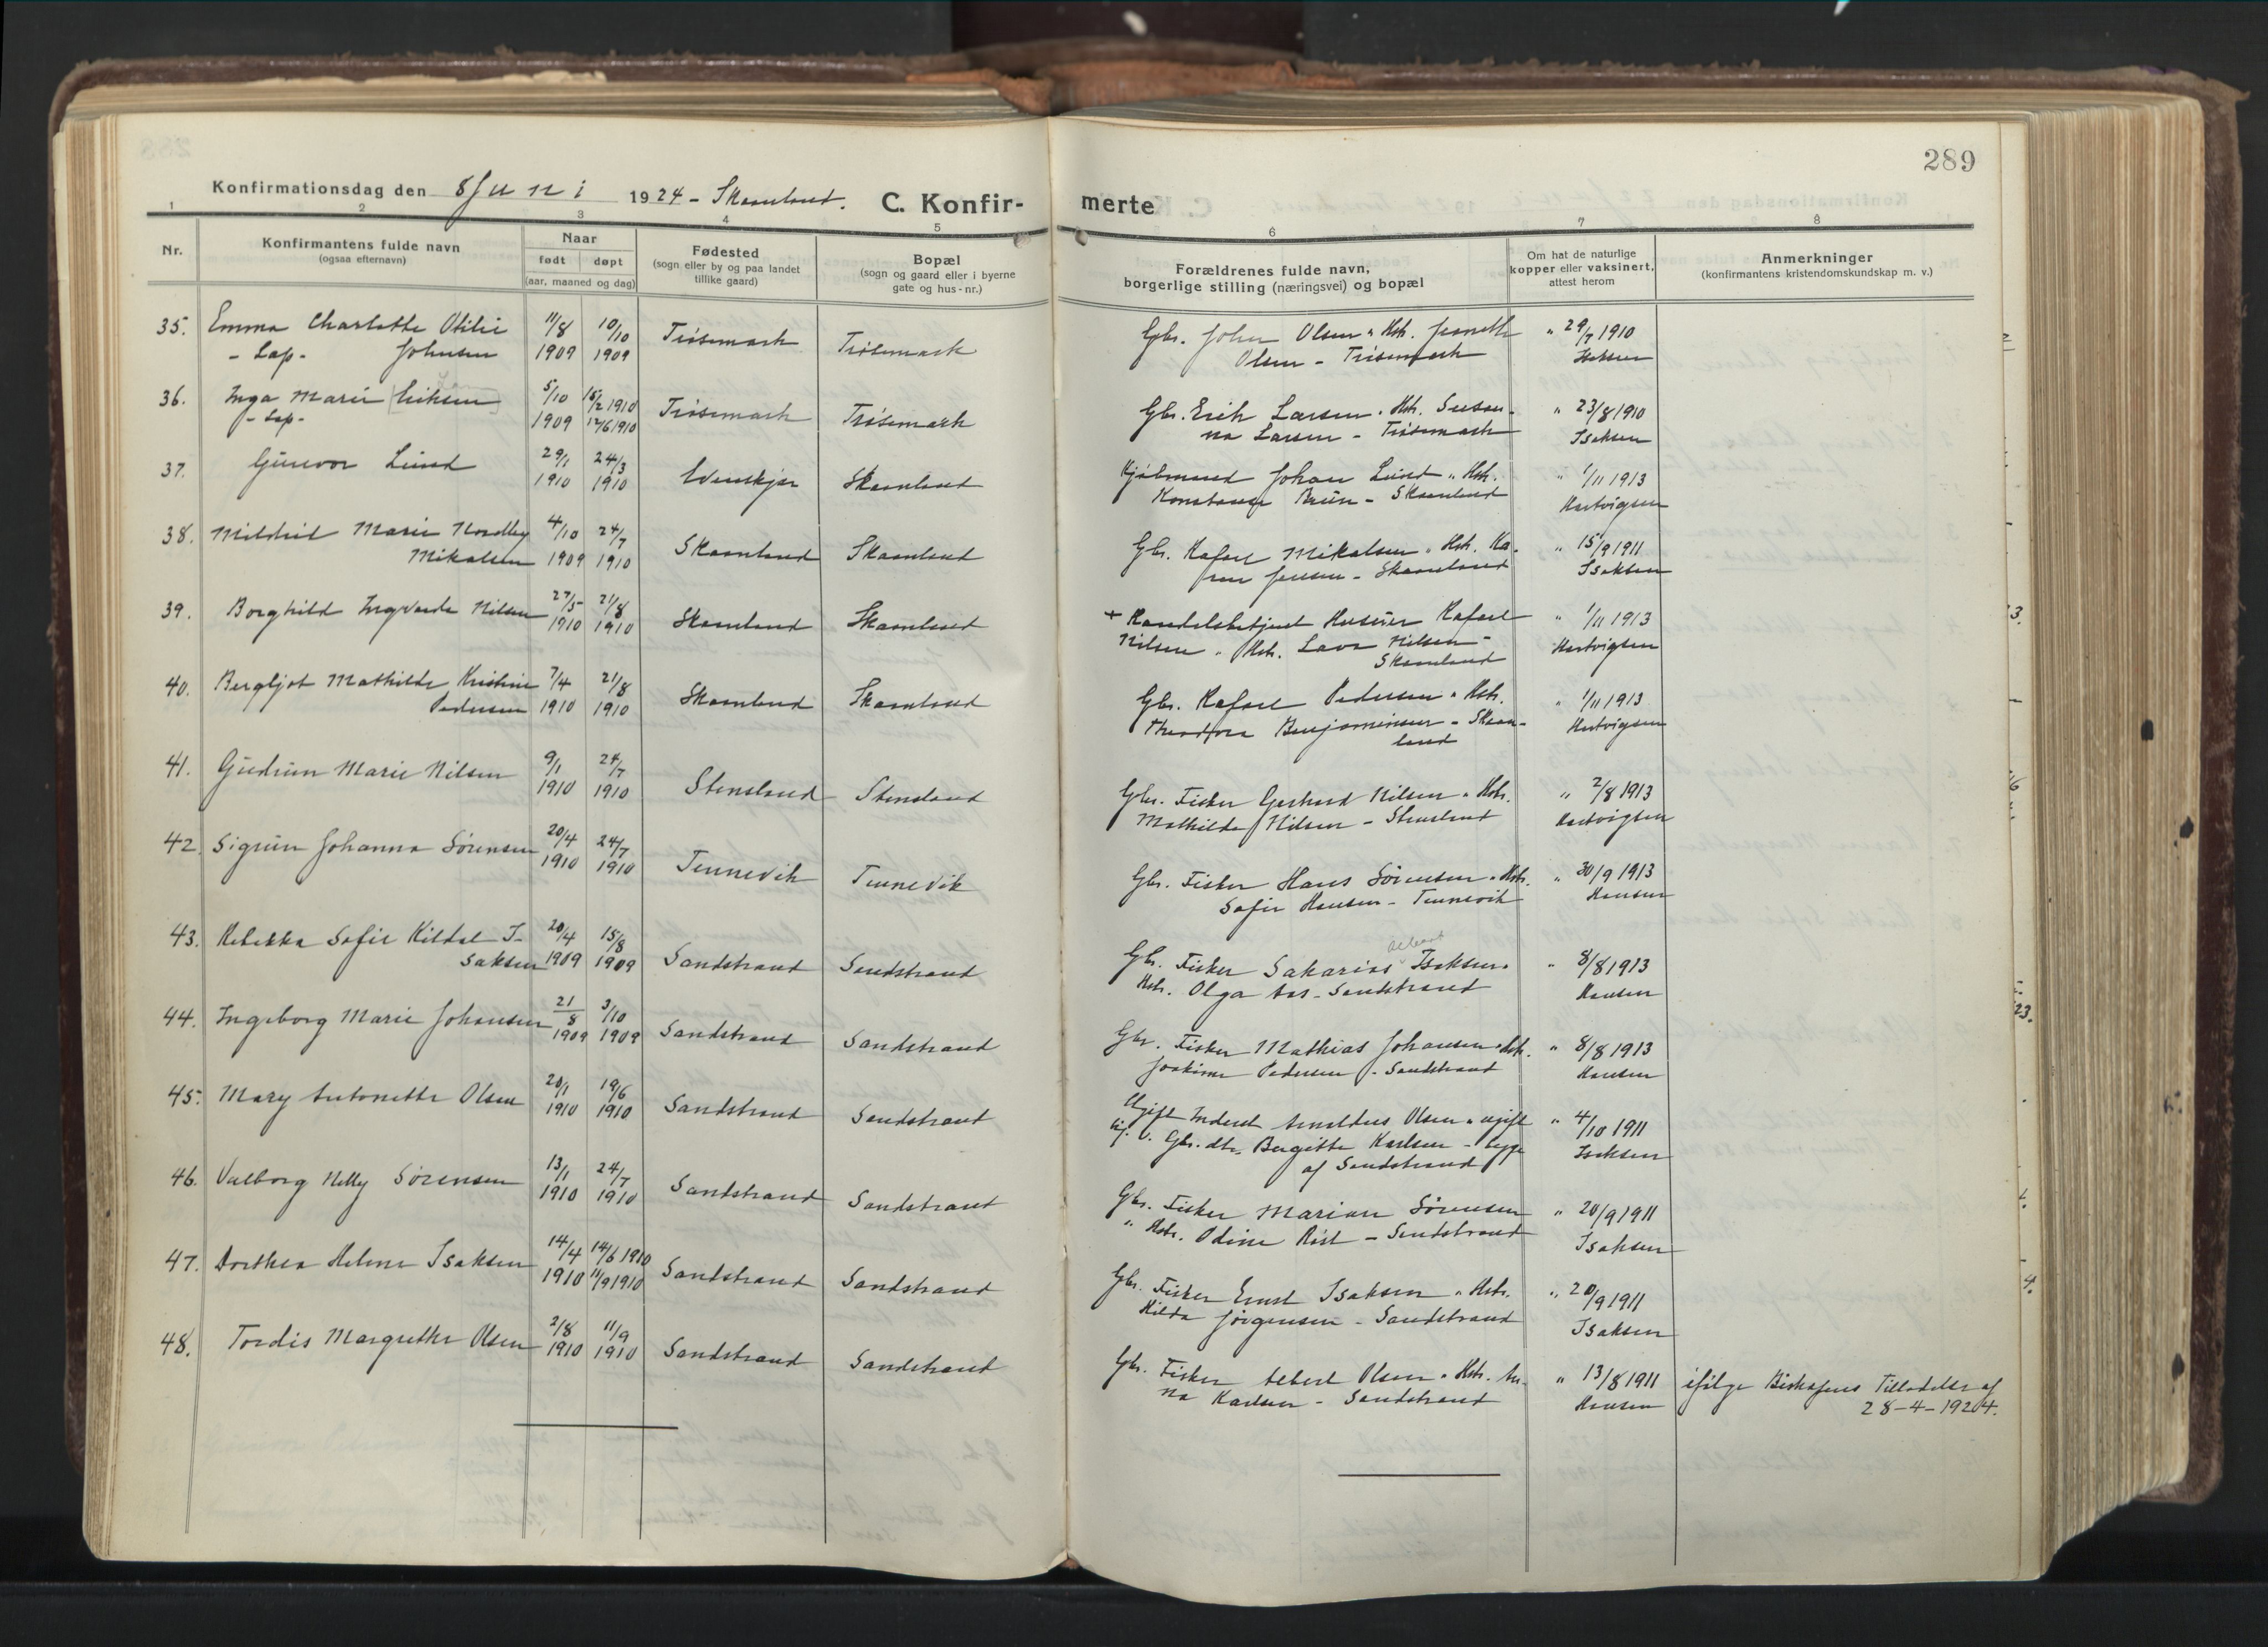 289
Konfirmationsdag den 8 Juni 1924 - Skaanland. C. Konfir- merte
1 2 3 4 5 6 7 8
Nr.
Konfirmantens fulde navn
(ogsaa efternavn)
Naar
født døpt
(aar, maaned og dag)
Fødested
(sogn eller by og paa landet
tillike gaard)
Bopæl
(sogn og gaard eller i byerne
gate og hus-nr.)
Forældrenes fulde navn,
borgerlige stilling (næringsvei) og bopæl
Om hat de naturlige
kopper eller vaksinert,
attest herom
Anmerkninger
(konfirmantens kristendomskundskap m. v.)
35. Emma Charlotte Otilie 11/8 10/10 Trøsemark Trøsemark Gbr. Johan Olsen " Hstr. Jeanette " 29/7 1910
- Lap- Johnsen 1909 1909 Olsen - Trøsemark Isaksen
36. Inga Marie Eriksen 5/10 15/2 1910 Trøsemark Trøsemark Gbr. Erik Larsen " Hstr. Susan- " 23/8 1910
- Lap- 1909 12/6 1910 na Larsen - Trøsemark Isaksen
37. Gunvor Lund 29/1 24/3 Evenskjær Skaanland Johan Lund " Hstr. " 1/11 1913
1910 1910 Konstanse Bruun - Skaanland Hartvigsen
38. Mildrid Marie Nordby 4/10 24/7 Skaanland Skaanland Gbr. Rafael Mikalsen " Hstr. Ka- " 15/9 1911
Mikalsen 1909 1910 ren Jensen - Skaanland Isaksen
39. Borghild Ingvarda Nilsen 27/5 21/8 Skaanland Skaanland + Handelsbetjent Rafael " 1/11 1913
1910 1910 Nilsen " Hstr. Lava Nilsen - Hartvigsen
Skaanland
40. Bergljot Mathilde Kristine 7/4 21/8 Skaanland Skaanland Gbr. Rafael Pedersen " Hstr. " 1/11 1913
Pedersen 1910 1910 Theodora Benjaminsen - Skaan- Hartvigsen
land
41. Gudrun Marie Nilsen 9/1 24/7 Stensland Stensland Gbr. Fisker Gerhard Nilsen " Hstr. " 2/8 1913
1910 1910 Mathilde Nilsen - Stensland Hartvigsen
42. Sigrun Johanna Sørensen 20/4 24/7 Tennevik Tennevik Gbr. Fisker Hans Sørensen " Hstr. " 30/9 1913
1910 1910 Sofie Hansen - Tennevik Hansen
43. Rebekka Sofie Kildal I- 20/4 15/8 Sandstrand Sandstrand Gbr. Fisker Sakarias Isaksen " " 8/8 1913
saksen 1909 1909 Hstr. Olga Aas - Sandstrand Hansen
44. Ingeborg Marie Johansen 21/8 3/10 Sandstrand Sandstrand Gbr. Fisker Mathias Johansen " Hstr. " 8/8 1913
1909 1909 Joakime Pedersen - Sandstrand Hansen
45. Mary Antonette Olsen 20/1 19/6 Sandstrand Sandstrand Ugift Inderst Arnoldus Olsen " ugift " 4/10 1911
1910 1910 Gbr. dtr. Bergitte Karlsen - begge Isaksen
af Sandstrand
46. Valborg Nelly Sørensen 13/1 24/7 Sandstrand Sandstrand Gbr. Fisker Marian Sørensen " 20/9 1911
1910 1910 " Hstr. Odine Røst - Sandstrand Isaksen
47. Dorthea Helene Isaksen 14/4 14/6 1910 Sandstrand Sandstrand Gbr. Fisker Ernst Isaksen " Hstr. " 20/9 1911
1910 11/9 1910 Hilda Jørgensen - Sandstrand Isaksen
48. Tordis Margrethe Olsen 2/8 11/9 Sandstrand Sandstrand Gbr. Fisker Albert Olsen " Hstr. An- " 13/8 1911 ifølge Biskopens Tilladelse af
1910 1910 na Karlsen - Sandstrand Hansen 28-4-1924.